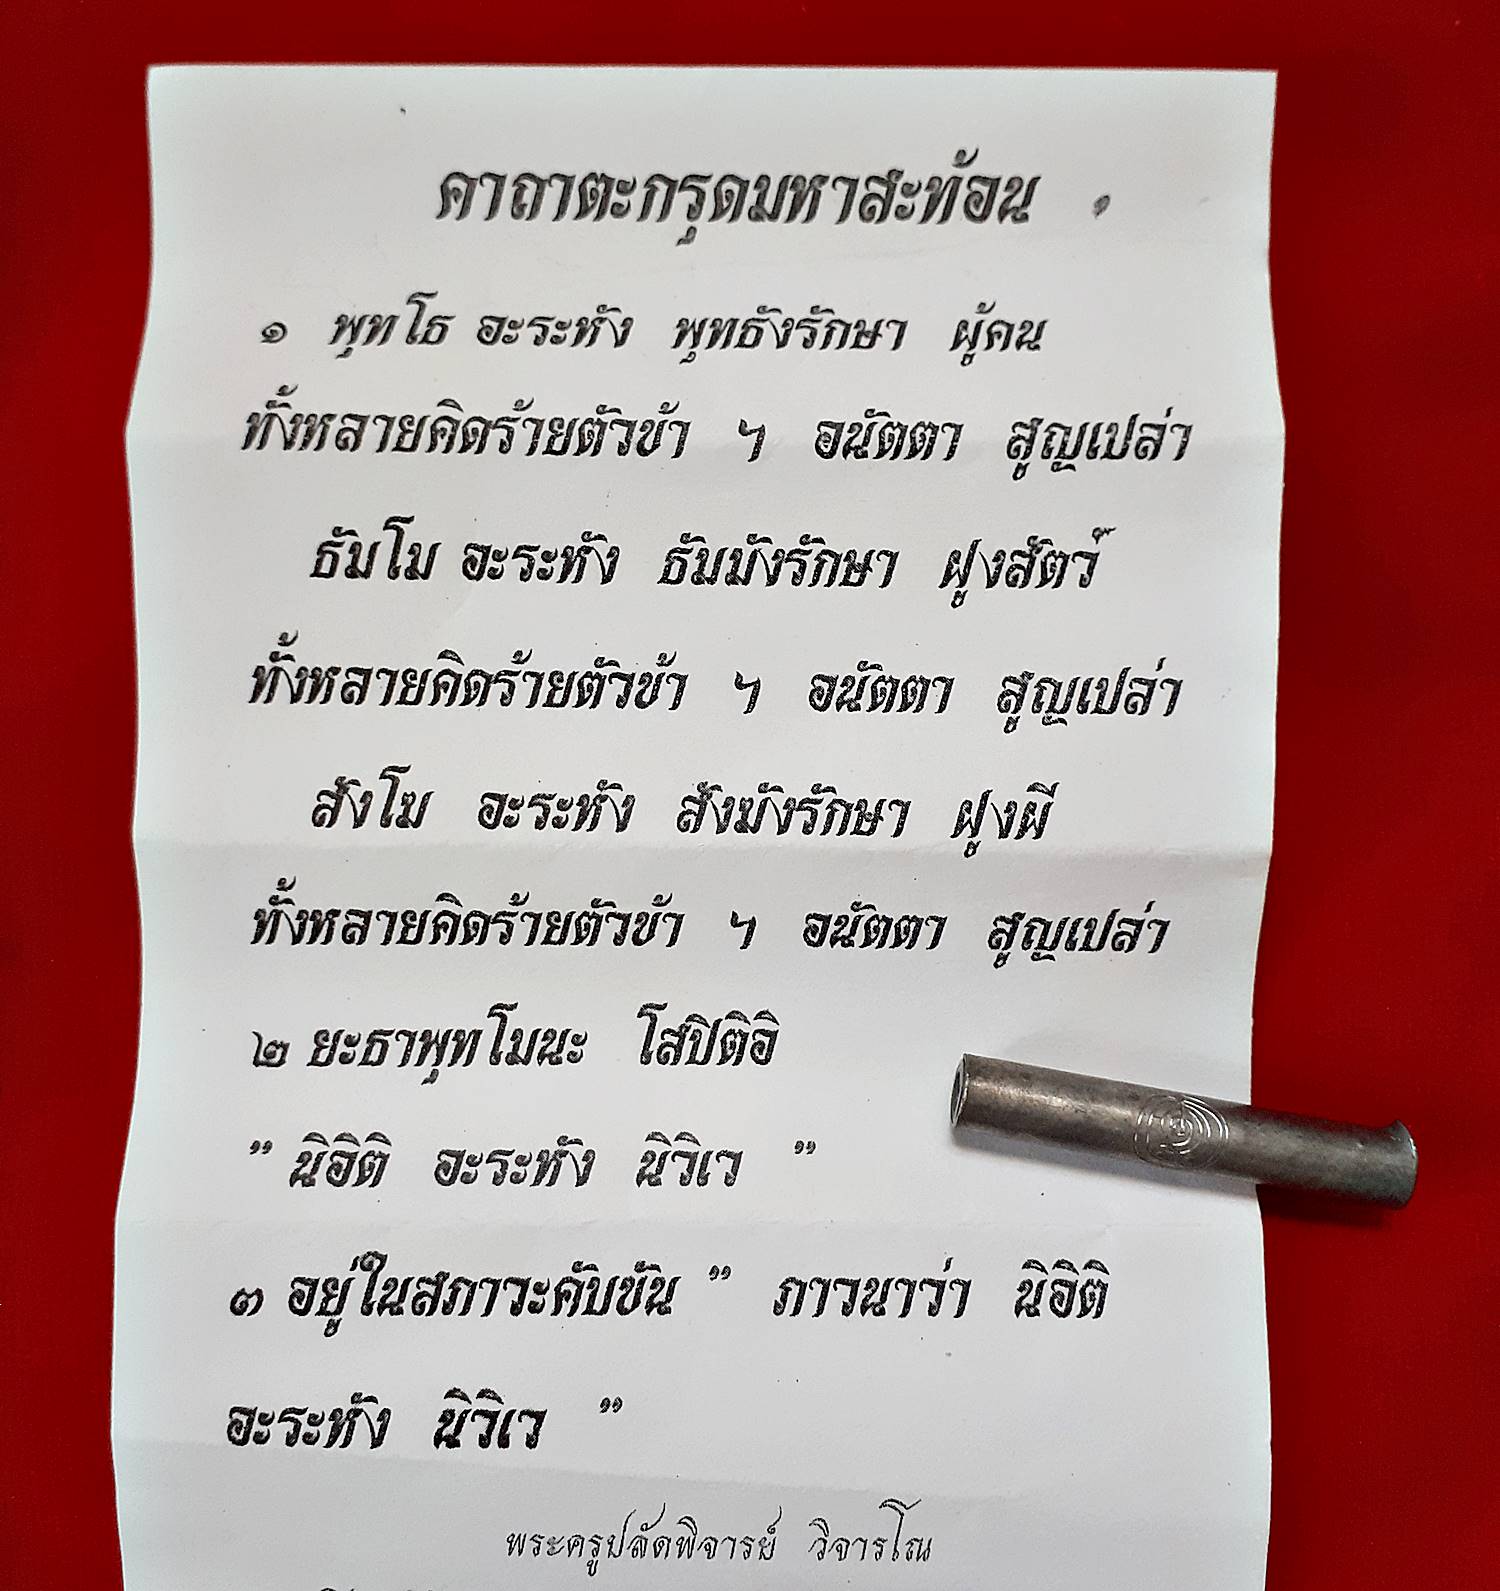 คาถาตะกรุดมหาสะท้อน
๑ พุทโธ อะระหัง พุทธังรักษา ผู้คน
ทั้งหลายคิดร้ายตัวข้า ฯ อนัตตา สูญเปล่า
ธัมโม อะระหัง ธัมมังรักษา ฝูงสัตว์
ทั้งหลายคิดร้ายตัวข้า ฯ อนัตตา สูญเปล่า
สังโฆ อะระหัง สังฆังรักษา ฝูงผี
ทั้งหลายคิดร้ายตัวข้า ฯ อนัตตา สูญเปล่า
๒ ยะธาพุทโมนะ โสปิติอิ
" นิอิติ อะระหัง นิวิเว "
๓ อยู่ในสภาวะคับขัน " ภาวนาว่า นิอิติ
อะระหัง นิวิเว "
พระครูปลัดพิจารย์ วิจารโณ